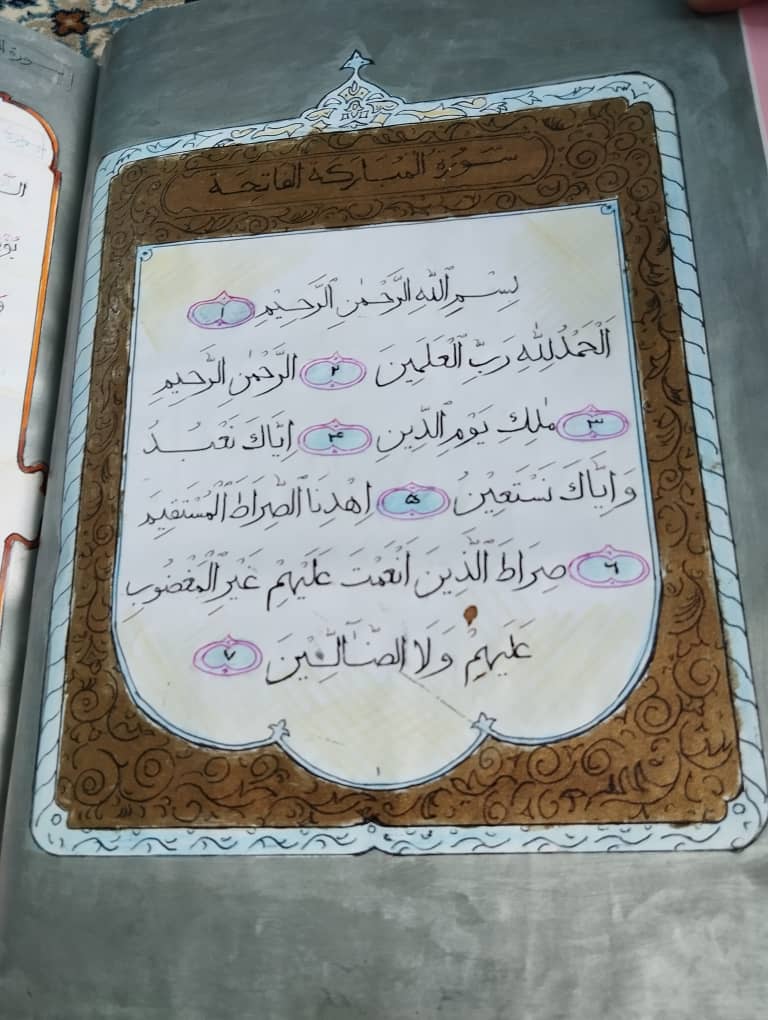 سورة المباركة الفاتحة
بِسْمِ ٱللَّهِ الرَّحْمٰنِ ٱلرَّحِيمِ ۱
اَلْحَمْدُ لِلّٰهِ رَبِّ ٱلْعٰلَمِينَ ۲ الرَّحْمٰنِ الرَّحِيمِ
۳ مٰلِكِ يَوْمِ ٱلدِّينِ ۴ اِيَّاكَ نَعْبُدُ
وَ اِيَّاكَ نَسْتَعِيْنُ ۵ اِهْدِنَا ٱلصِّرَاطَ ٱلْمُسْتَقِيمَ
٦ صِرَاطَ ٱلَّذِينَ اَنْعَمْتَ عَلَيْهِمْ غَيْرِ الْمَغْضُوبِ
عَلَيْهِمْ وَلَا الضَّآلِّيْنَ ۷
۱